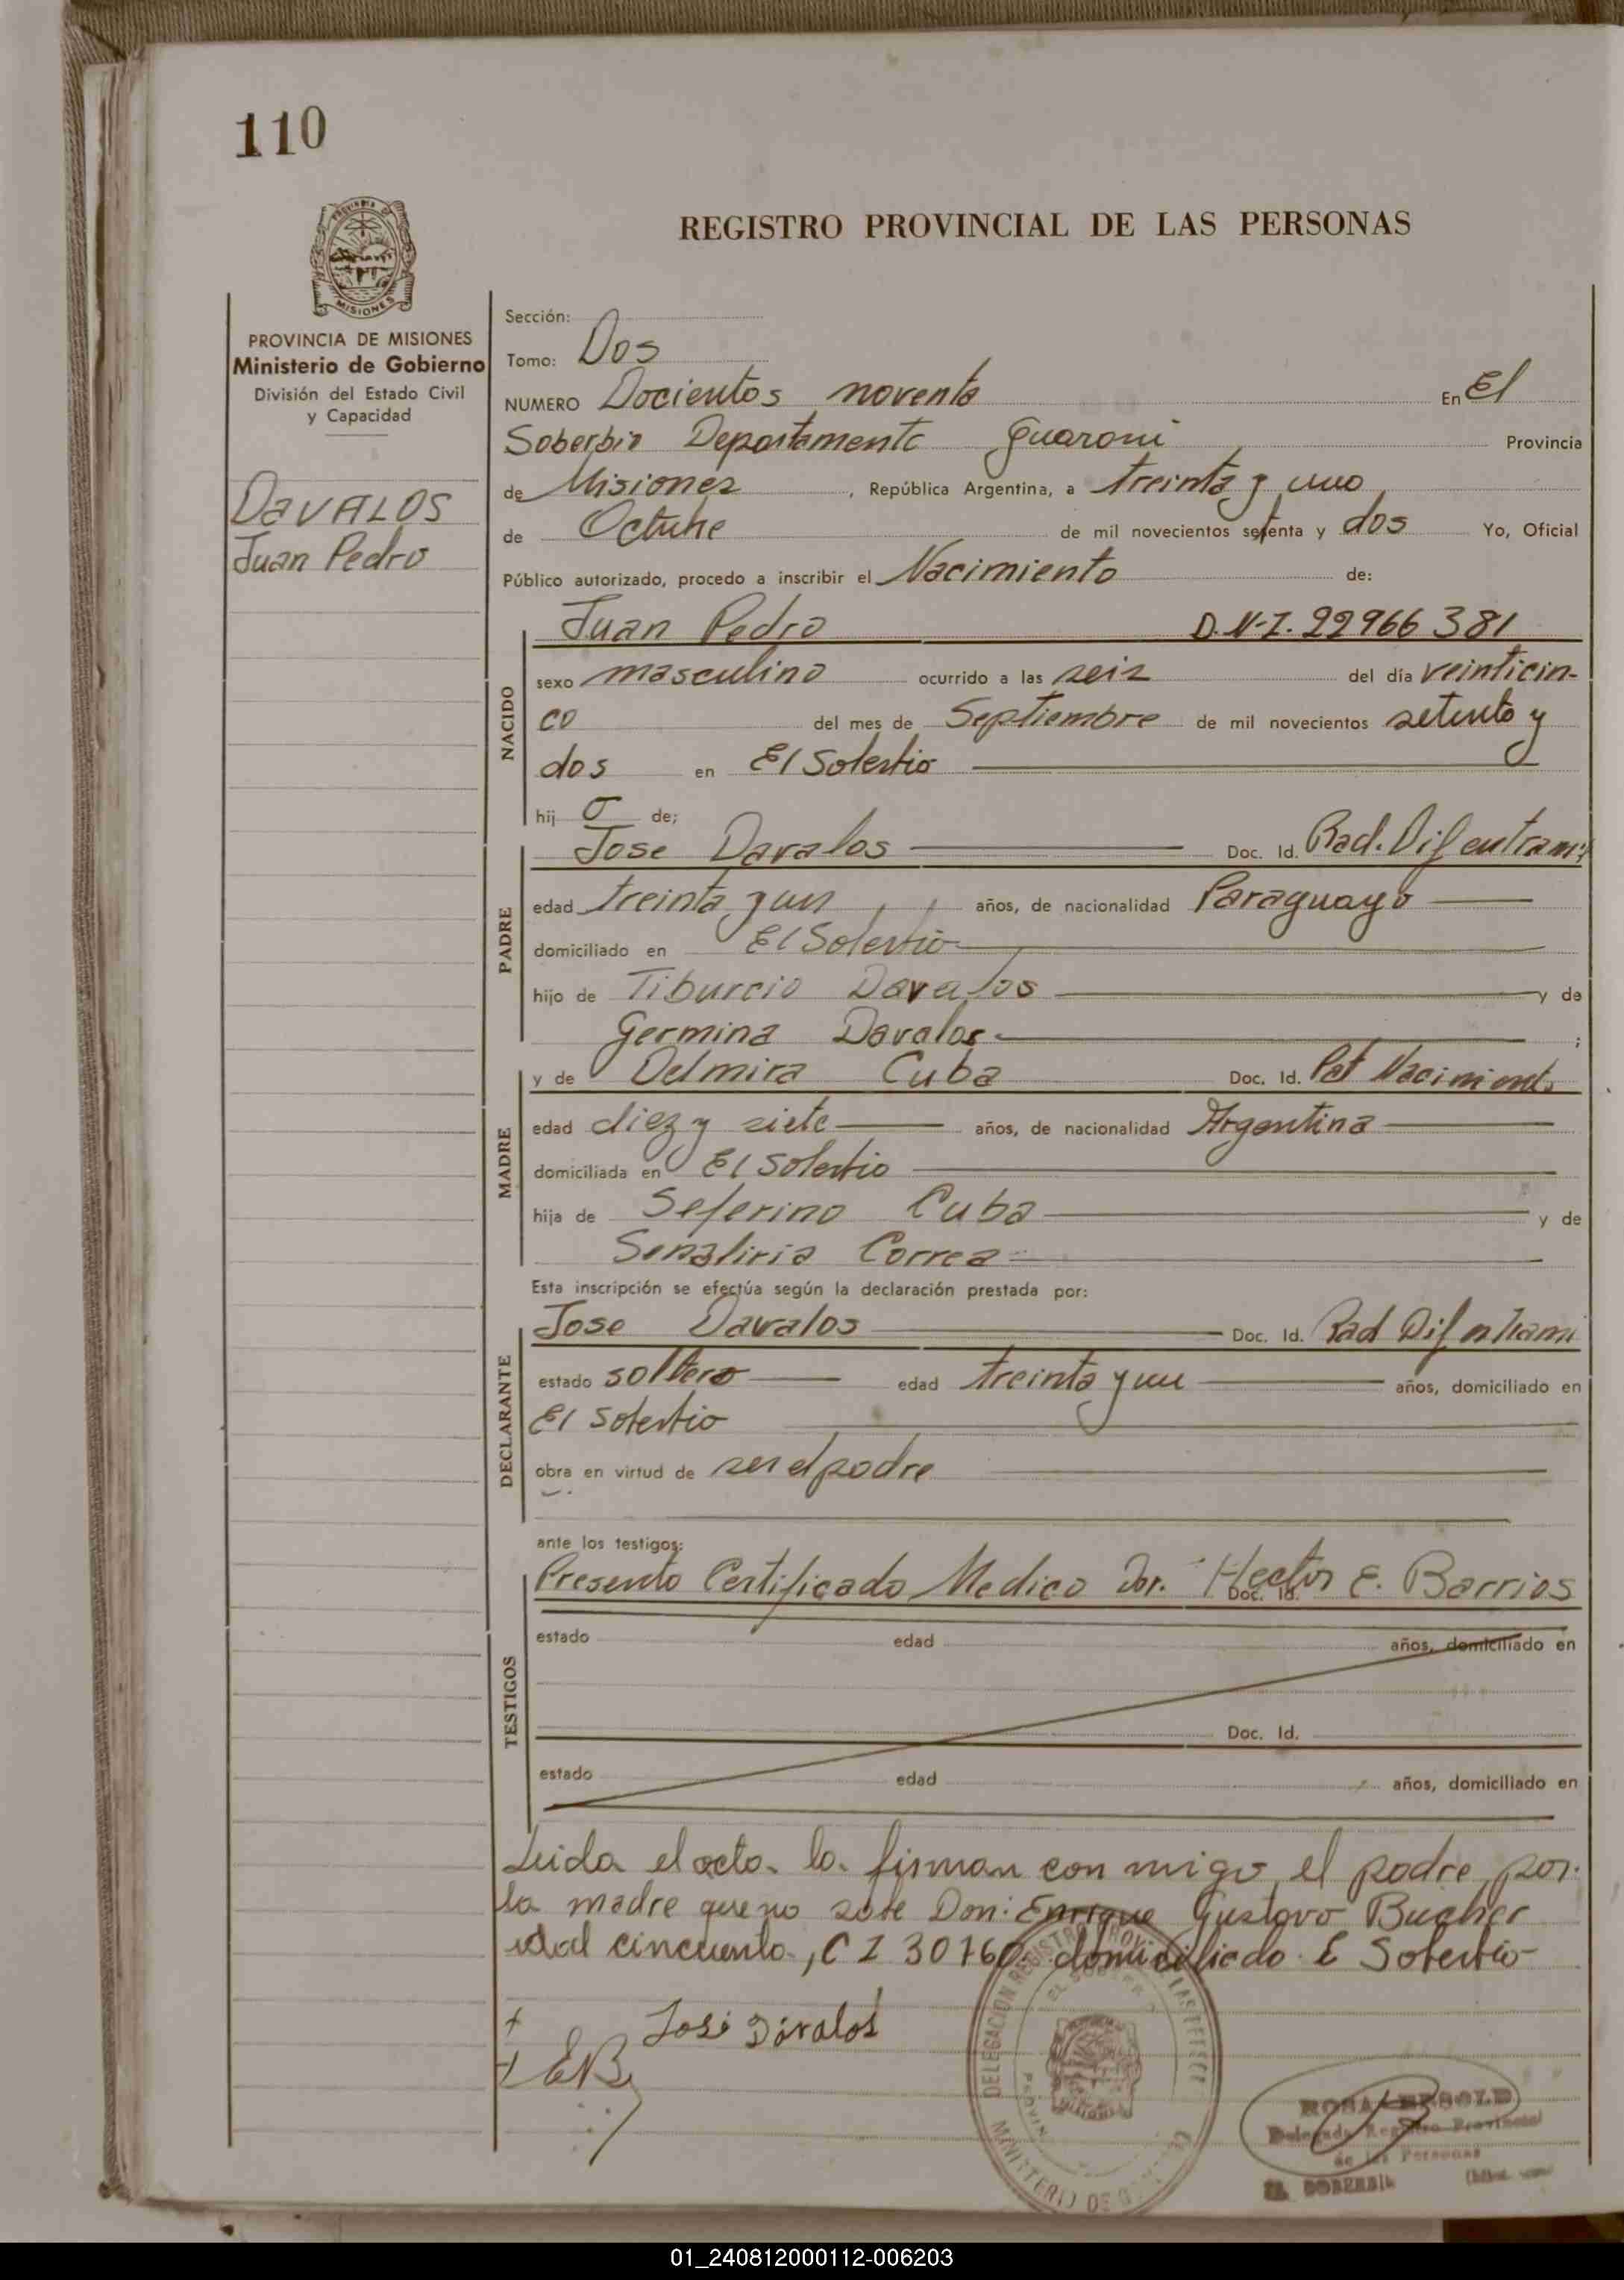 110
REGISTRO PROVINCIAL DE LAS PERSONAS
MISIONES
PROVINCIA DE MISIONES
Ministerio de Gobierno
División del Estado Civil
y Capacidad
DAVALOS
Juan Pedro
Sección:
Tomo: Dos
NUMERO Docientos noventa En El
Soberbio Departamento Guarani Provincia
de Misiones, República Argentina, a treinta y uno
de Octubre de mil novecientos setenta y dos Yo, Oficial
Público autorizado, procedo a inscribir el Nacimiento de:
NACIDO
Juan Pedro D.N.I. 22966381
sexo masculino ocurrido a las seis del día veinticin-
co del mes de Septiembre de mil novecientos setenta y
dos en El Soberbio
hij o de;
PADRE
Jose Davalos Doc. Id. Rad. Dif en trami
edad treinta y un años, de nacionalidad Paraguayo
domiciliado en El Soberbio
hijo de Tiburcio Davalos y de
Germina Davalos ;
MADRE
y de Delmira Cuba Doc. Id. Nacimiento
edad diez y siete años, de nacionalidad Argentina
domiciliada en El Soberbio
hija de Seferino Cuba y de
Correa
Esta inscripción se efectúa según la declaración prestada por:
DECLARANTE
Jose Davalos Doc. Id. Rad Dif en trami
estado soltero edad treinta y un años, domiciliado en
El Soberbio
obra en virtud de ser el padre
ante los testigos:
TESTIGOS
Presento Certificado Medico Dor. Hector E. Barrios Doc. Id.
estado edad años, domiciliado en
Doc. Id.
estado edad años, domiciliado en
Leida el acta la firman con migo el padre, por
la madre que no sabe Don: Enrique Gustavo Bucher
edad cincuenta, C I 30760 domiciliado E Soberbio
José Dávalos
EB
DELEGACION REGISTRO
MINISTERIO DE
ROSA
Delegada Registro Provincial
de las Personas
EL SOBERBIO
01_240812000112-006203